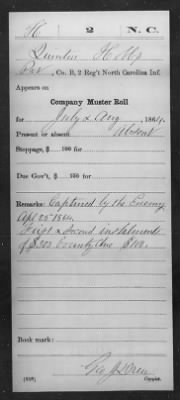 H 2 N. C.
Quinton Hobbs
Pvt, Co. B, 2 Reg't North Carolina Inf.
Appears on
Company Muster Roll
for July & Aug, 1864.
Present or absent Absent
Stoppage, $ 100 for
Due Gov't, $ 100 for
Remarks: Captured by the Enemy
Apl 25 1864.
First & Second instalments
of $ Bounty due $100.
Book mark:
Copyist.